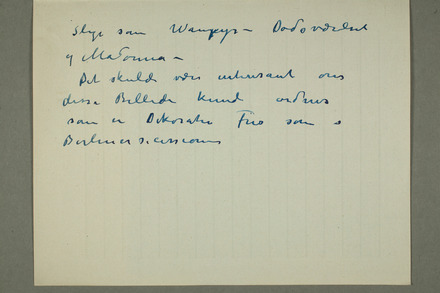 slige som Wampyr – Dødsværelset
og Madonna –
Det skulde være interssant om
disse Billeder kunde ordnes
som en Dekorativ Frise som i
Berlinersecessionen